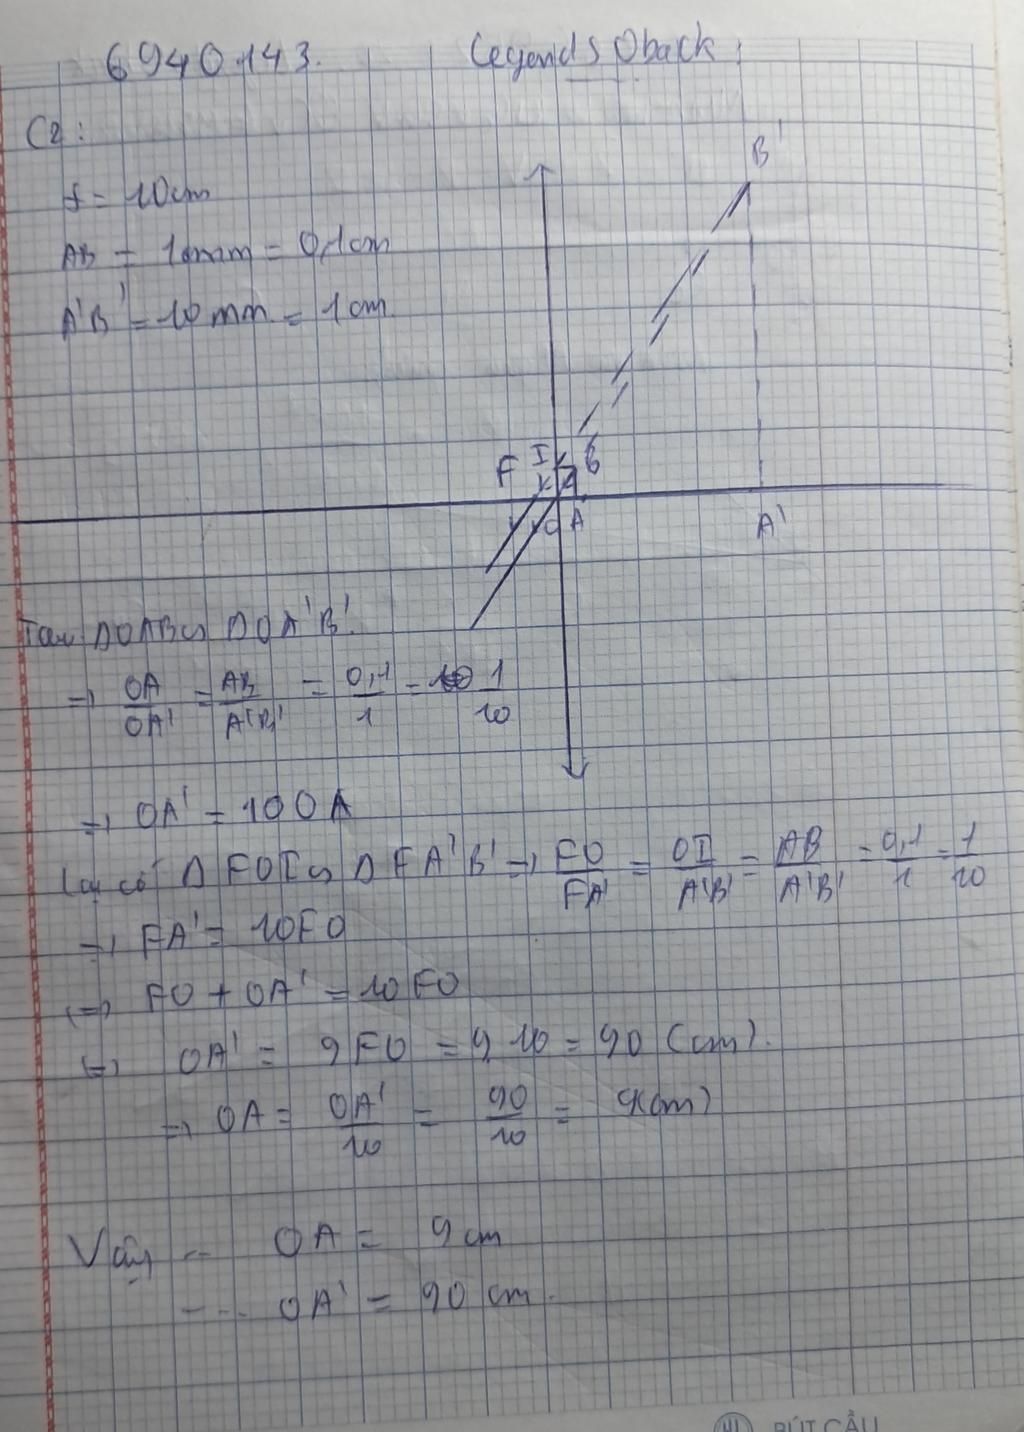 6940143. Legends Oback:
C2:
f = 10cm
AB = 1mm = 0,1cm
A'B' = 10mm = 1cm.
B'
F I B
O A A'
Ta có ΔOAB ∽ ΔOA'B'.
=> OA/OA' = AB/A'B' = 0,1/1 = 1/10
=> OA' = 10OA
Lại có ΔFOI ∽ ΔFA'B' => FO/FA' = OI/A'B' = AB/A'B' = 0,1/1 = 1/10
=> FA' = 10FO
<=> FO + OA' = 10FO
<=> OA' = 9FO = 9.10 = 90 (cm).
=> OA = OA'/10 = 90/10 = 9(cm)
Vậy -- OA = 9cm
--- OA' = 90 cm.
BÚT CẦU